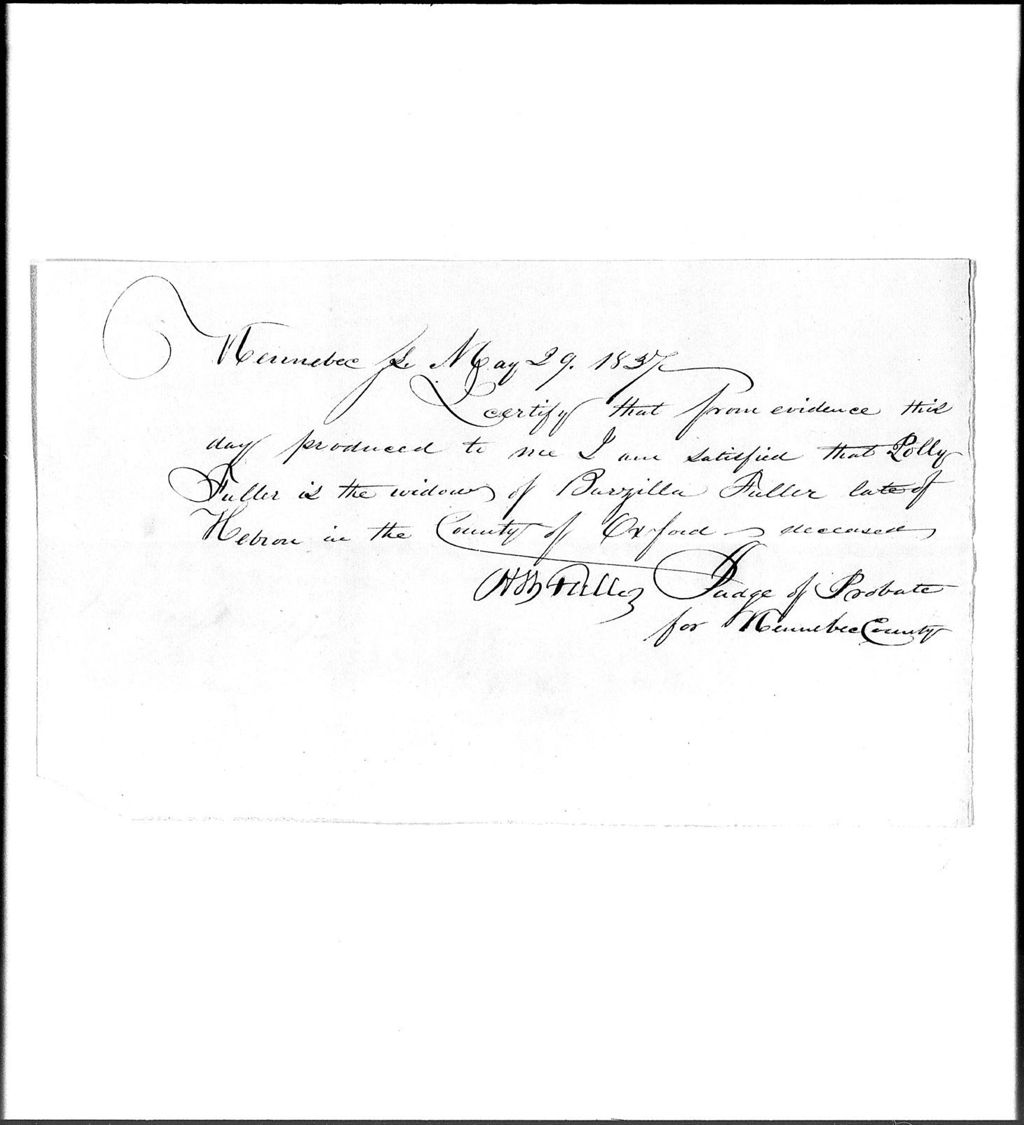 Kennebec ss May 29. 1837
I certify that from evidence this
day produced to me I am satisfied that Polly
Fuller is the widow of Barzilla Fuller late of
Hebron in the County of Oxford deceased
Judge of Probate
for Kennebec County